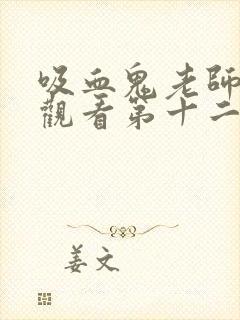 吸血鬼老師
觀看第十二
姜文